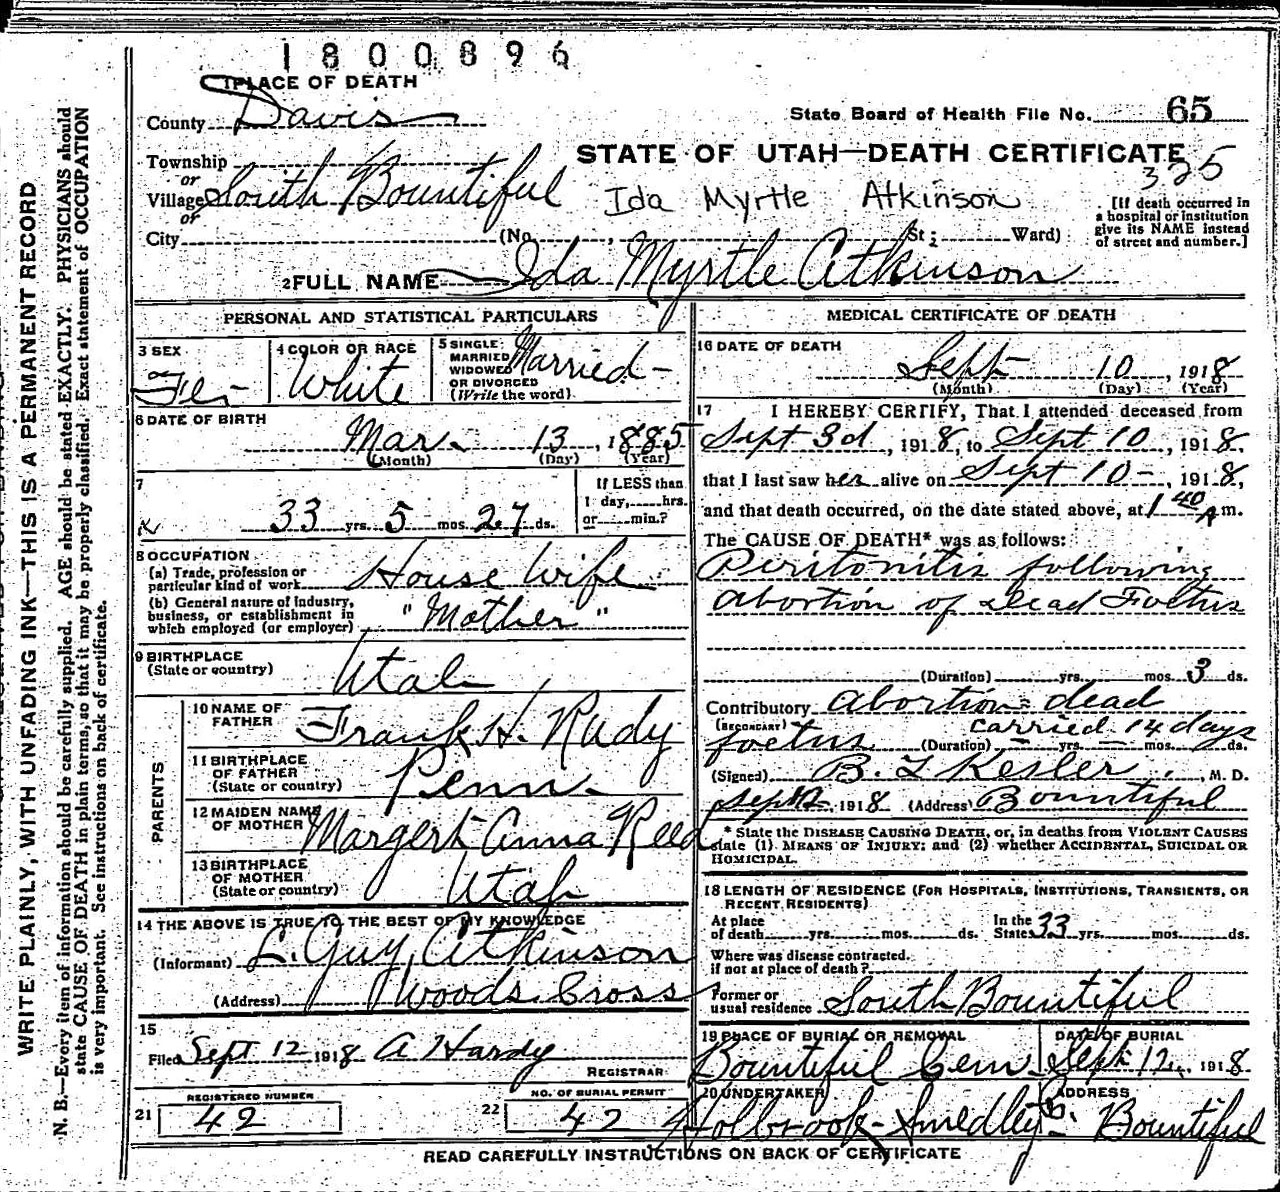 1800896
1 PLACE OF DEATH
County Davis
State Board of Health File No. 65
Township
or
Village South Bountiful
or
City
STATE OF UTAH—DEATH CERTIFICATE
325
Ida Myrtle Atkinson
(No. , St; Ward)
[If death occurred in
a hospital or institution
give its NAME instead
of street and number.]
2 FULL NAME Ida Myrtle Atkinson
PERSONAL AND STATISTICAL PARTICULARS
3 SEX
4 COLOR OR RACE
White
5 SINGLE
MARRIED
WIDOWED
OR DIVORCED
(Write the word)
Married
6 DATE OF BIRTH
Mar. 13, 1885
(Month) (Day) (Year)
7
33 yrs. 5 mos. 27 ds.
If LESS than
1 day, hrs.
or min.?
8 OCCUPATION
(a) Trade, profession or
particular kind of work House Wife
(b) General nature of industry,
business, or establishment in
which employed (or employer) "Mother"
9 BIRTHPLACE
(State or country) Utah
PARENTS
10 NAME OF
FATHER Frank H. Rudy
11 BIRTHPLACE
OF FATHER
(State or country) Penn.
12 MAIDEN NAME
OF MOTHER Margert Anna Reed
13 BIRTHPLACE
OF MOTHER
(State or country) Utah
14 THE ABOVE IS TRUE TO THE BEST OF MY KNOWLEDGE
(Informant) L. Guy Atkinson
(Address) Woods Cross
15
Filed Sept 12 1918 A Hardy
REGISTRAR
REGISTERED NUMBER
21 42
NO. OF BURIAL PERMIT
22 42
MEDICAL CERTIFICATE OF DEATH
16 DATE OF DEATH
Sept 10, 1918
(Month) (Day) (Year)
17 I HEREBY CERTIFY, That I attended deceased from
Sept 3d, 1918, to Sept 10, 1918,
that I last saw her alive on Sept 10-, 1918,
and that death occurred, on the date stated above, at 1 40 A m.
The CAUSE OF DEATH* was as follows:
Peritonitis following
Abortion of Dead Foetus
(Duration) yrs. mos. 3 ds.
Contributory abortion dead
(SECONDARY) carried 14 days
foetus (Duration) - yrs. - mos. ds.
(Signed) B. L Kesler, M. D.
Sept 12, 1918 (Address) Bountiful
* State the DISEASE CAUSING DEATH, or, in deaths from VIOLENT CAUSES
state (1) MEANS OF INJURY; and (2) whether ACCIDENTAL, SUICIDAL OR
HOMICIDAL.
18 LENGTH OF RESIDENCE (FOR HOSPITALS, INSTITUTIONS, TRANSIENTS, OR
RECENT RESIDENTS)
At place
of death yrs. mos. ds.
In the
State 33 yrs. mos. ds.
Where was disease contracted.
if not at place of death?
Former or
usual residence South Bountiful
19 PLACE OF BURIAL OR REMOVAL
Bountiful Cem.
DATE OF BURIAL
Sept. 12, 1918
20 UNDERTAKER
Holbrook-Smedley
ADDRESS
Bountiful
READ CAREFULLY INSTRUCTIONS ON BACK OF CERTIFICATE
WRITE PLAINLY, WITH UNFADING INK—THIS IS A PERMANENT RECORD
N. B.—Every item of information should be carefully supplied. AGE should be stated EXACTLY. PHYSICIANS should
state CAUSE OF DEATH in plain terms, so that it may be properly classified. Exact statement of OCCUPATION
is very important. See instructions on back of certificate.